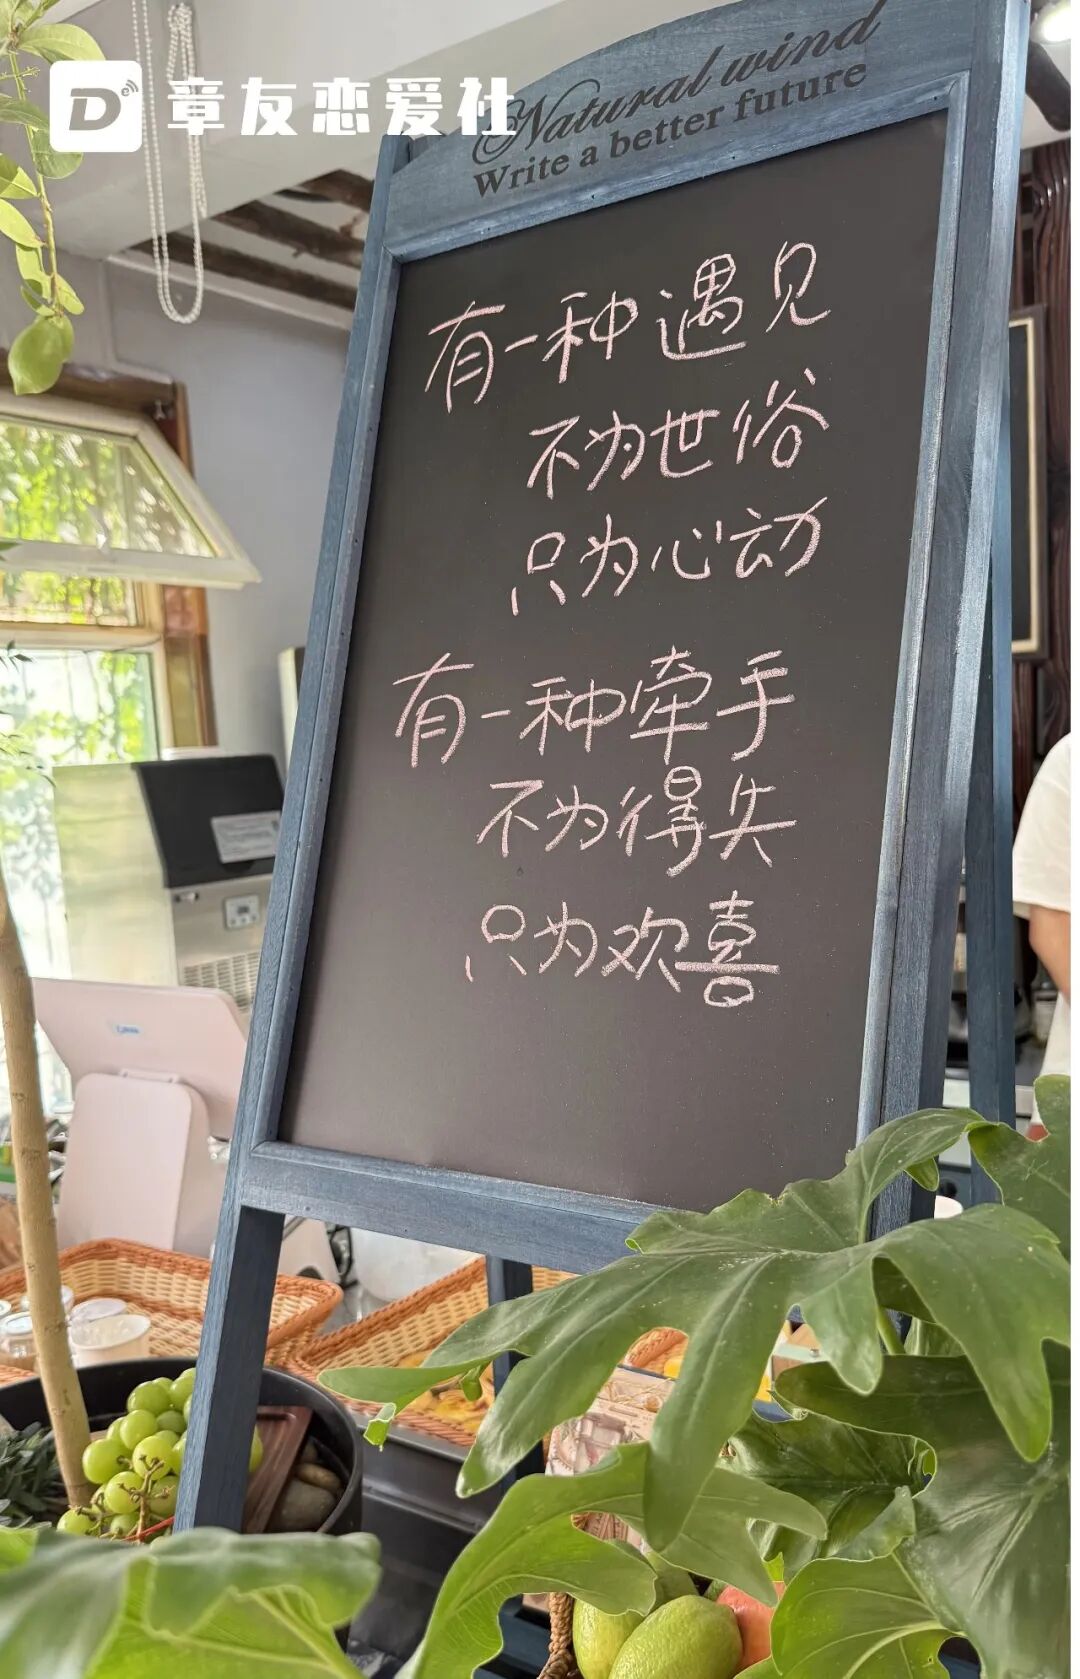 D
章友恋爱社
Natural wind
Write a better future
有一种遇见
不为世俗
只为心动
有一种牵手
不为得失
只为欢喜